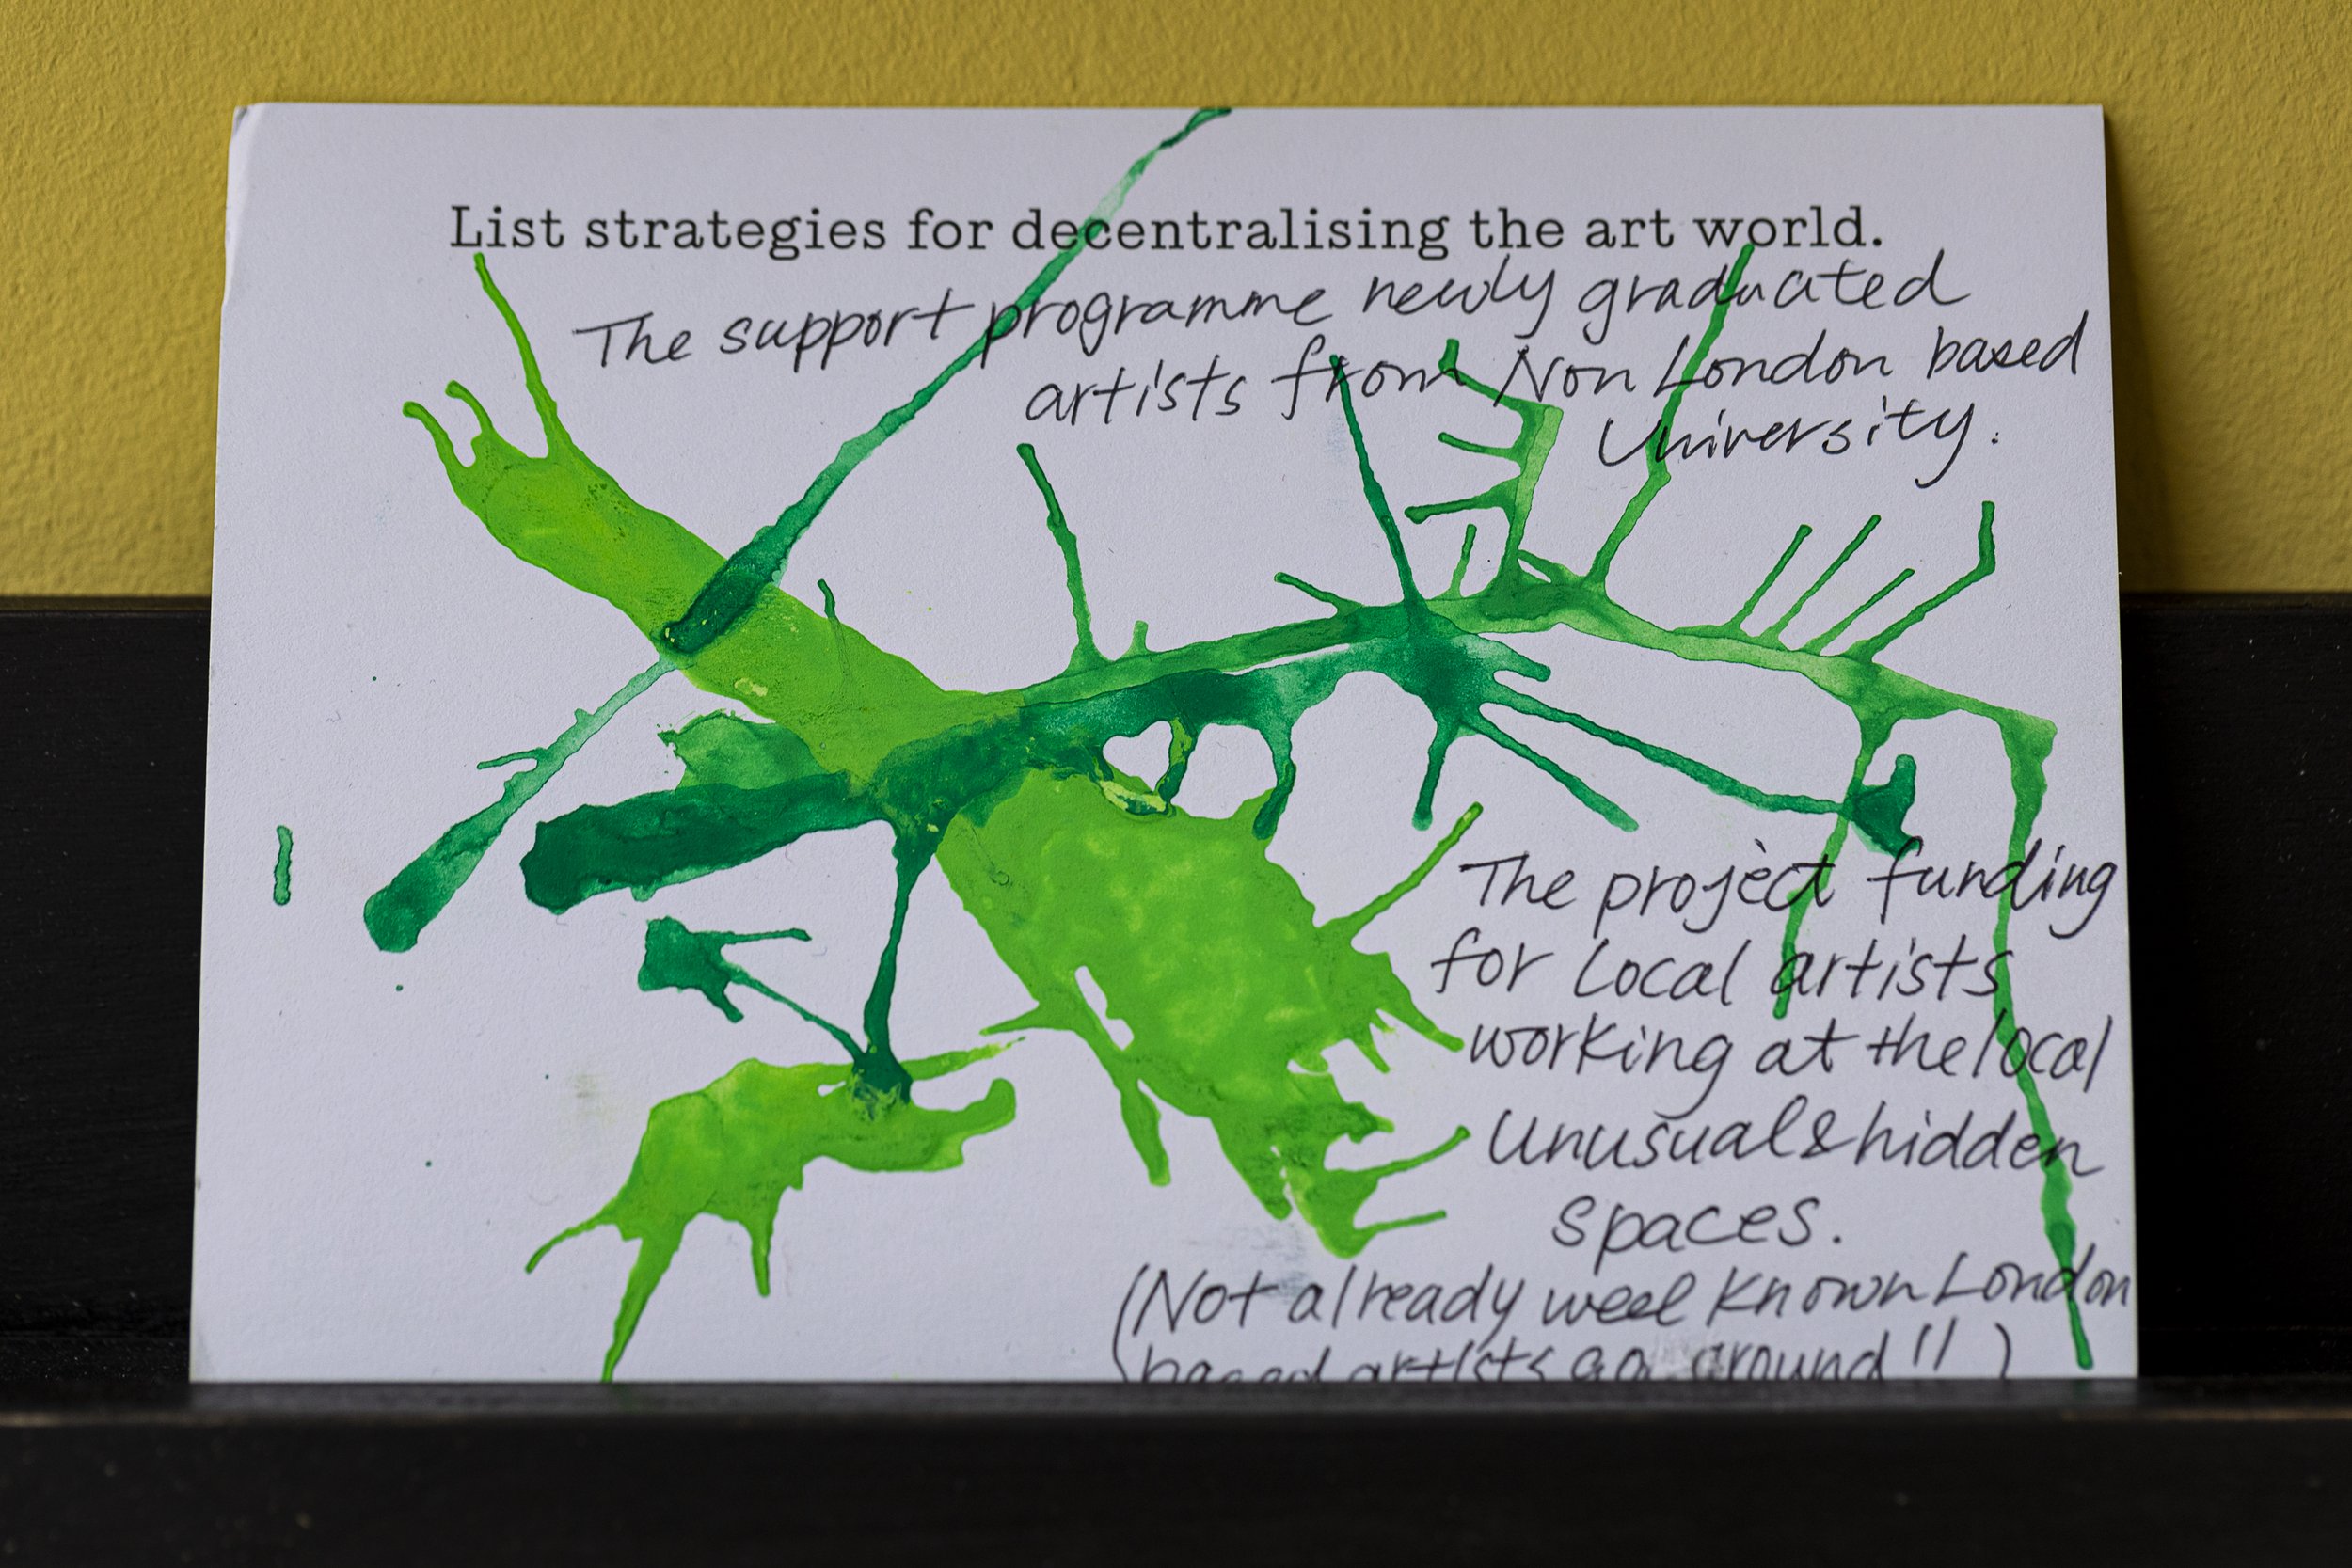 List strategies for decentralising the art world.
The support programme newly graduated
artists from Non London based
University.
The project funding
for local artists
working at the local
Unusual & hidden
spaces.
(Not already weel known London
based artists go around!!)